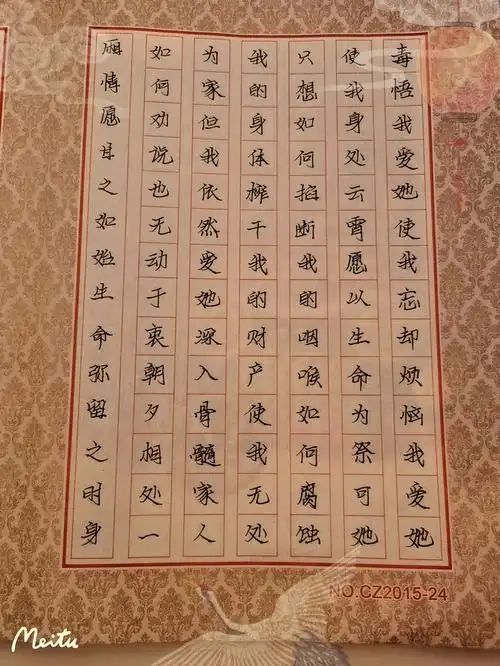 毒悟我爱她使我忘却烦恼我爱她
使我身处云霄愿以生命为祭可她
只想如何掐断我的咽喉如何腐蚀
我的身体榨干我的财产使我无处
为家但我依然爱她深入骨髓家人
如何劝说也无动于衷朝夕相处一
厢情愿甘之如始生命弥留之时身
NO.CZ2015-24
Meitu